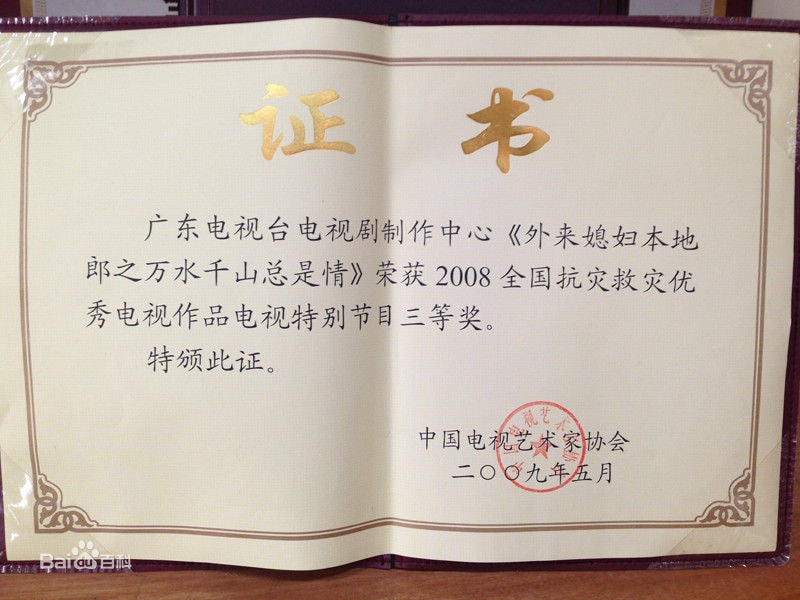 证 书
广东电视台电视剧制作中心《外来媳妇本地
郎之万水千山总是情》荣获 2008 全国抗灾救灾优
秀电视作品电视特别节目三等奖。
特颁此证。
中国电视艺术家协会
二〇〇九年五月
Bai百科